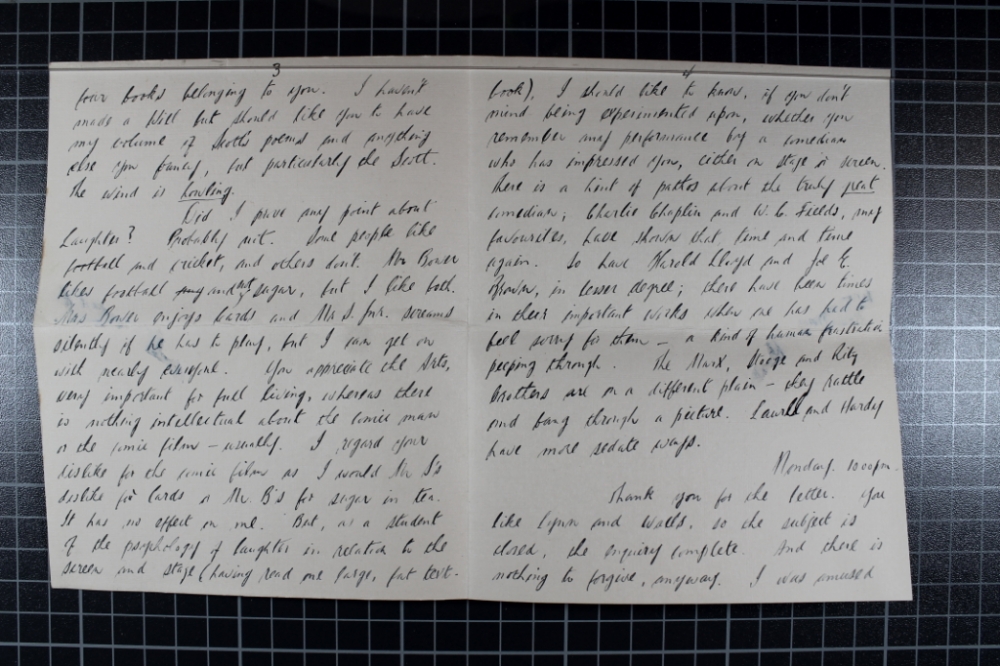 3
four books belonging to you. I haven't
made a Will but should like you to have
my volume of Scott's poems and anything
else you fancy, but particularly the Scott.
The wind is howling.
Did I prove my point about
Laughter? Probably not. Some people like
football and cricket, and others don't. Mr Bower
likes football and not sugar, but I like both.
Mrs Bower enjoys cards and Mr S. jnr. screams
silently if he has to play, but I can get on
with nearly everyone. You appreciate the Arts,
very important for full living, whereas there
is nothing intellectual about the comic man
or the comic film – usually. I regard your
dislike for the comic film as I would Mr S's
dislike for cards or Mr. B's for sugar in tea.
It has no effect on me. But, as a student
of the psychology of laughter in relation to the
screen and stage (having read one large, fat text-
4
book), I should like to know, if you don't
mind being experimented upon, whether you
remember any performance by a comedian
who has impressed you, either on stage or screen.
There is a hint of pathos about the truly great
comedian; Charlie Chaplin and W.C. Fields, my
favourites, have shown that time and time
again. So have Harold Lloyd and Joe E.
Brown, in lesser degree; there have been times
in their important works when one has had to
feel sorry for them – a kind of human frustration
peeping through. The Marx, and Ritz
Brothers are on a different plain – they rattle
and bang through a picture. Laurel and Hardy
have more sedate ways.
Monday. 10.00pm.
Thank you for the letter. You
like Lynn and Walls, so the subject is
closed, the enquiry complete. And there is
nothing to forgive, anyway. I was amused